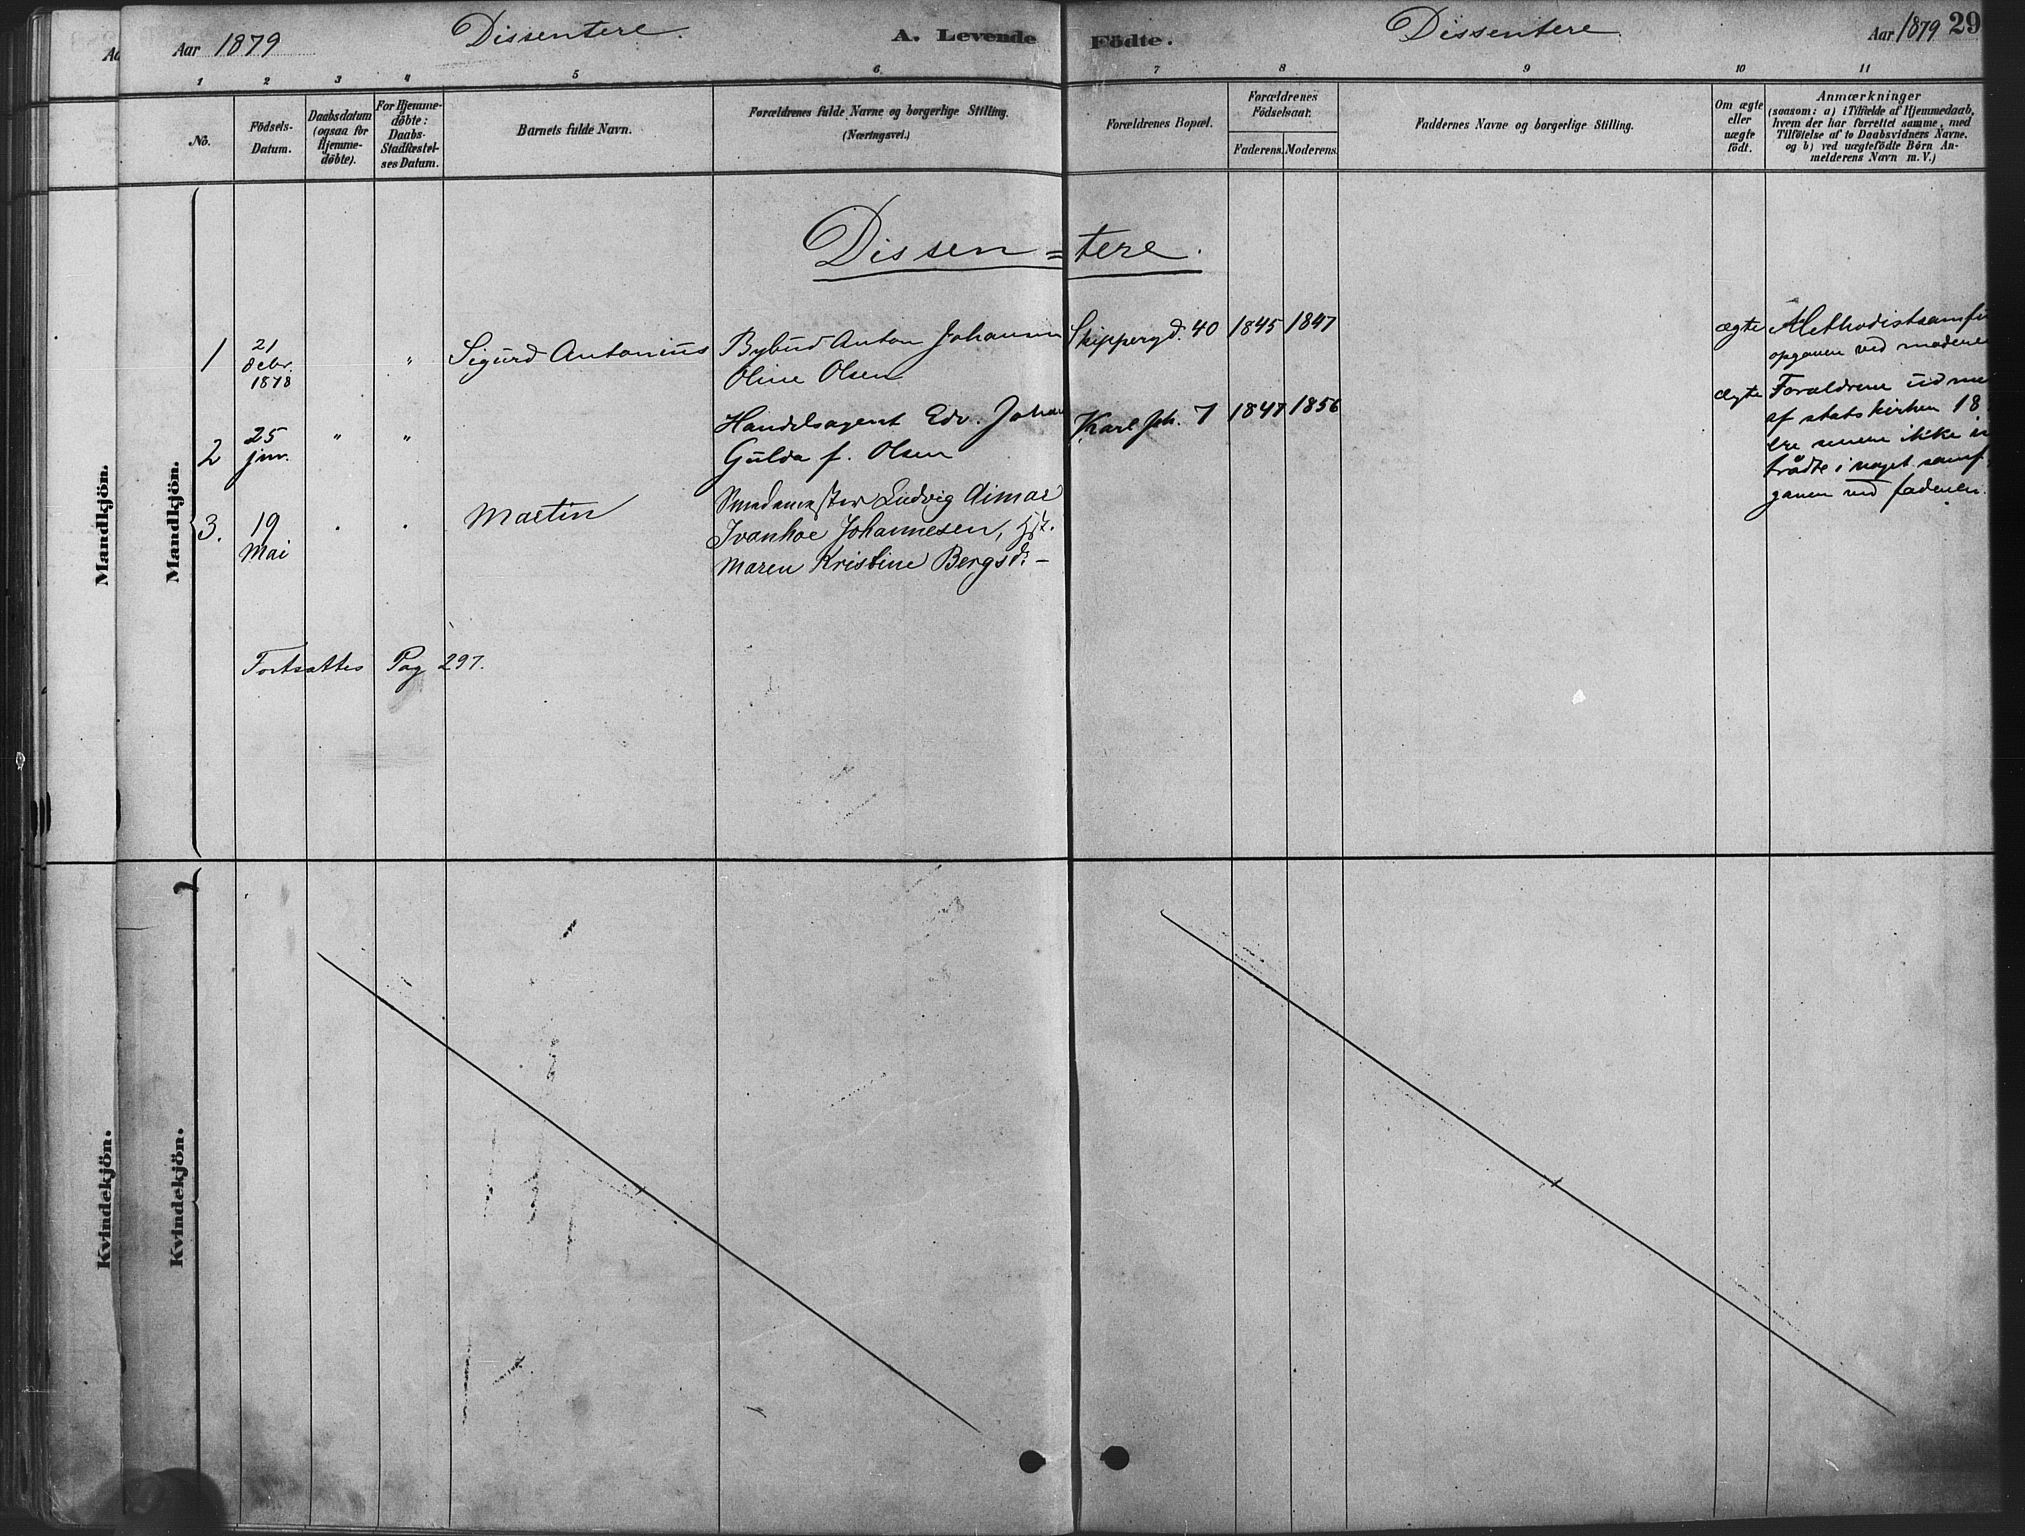 Aar 1879
Dissentere.
A. Levende Födte.
Dissentere
Aar 1879
29
1 2 3 4 5 6 7 8 9 10 11
No.
Födsels-
Datum.
Daabsdatum
(ogsaa for
Hjemme-
döbte).
For Hjemme-
döbte:
Daabs-
Stadfæstel-
ses Datum.
Barnets fulde Navn.
Forældrenes fulde Navne og borgerlige Stilling.
(Næringsvei.)
Forældrenes Bopæl.
Forældrenes
Födselsaar.
Faderens. Moderens.
Faddernes Navne og borgerlige Stilling.
Om ægte
eller
uægte
födt.
Anmærkninger
(saasom: a) i Tilfælde af Hjemmedaab,
hvem der har forrettet samme, med
Tilföielse af to Daabsvidners Navne,
og b) ved uægtefödte Börn An-
melderens Navn m. V.)
Mandkjön.
Mandkjön.
Dissen=tere.
1
21
Debr.
1878
"
Sigurd Antonius
Bybud Anton Johansen
Oline Olsen
Skippergd. 40
1845
1847
ægte
Methodistsamfu
opgaven ved moderen
2
25
jnr.
"
"
Handelsagent Edv. Johan
Gulda f. Olsen
Karl Joh. 7
1847
1856
ægte
Forældrene udme
af statskirken 18
ere senere ikke in
trådte i noget samf
gaven ved faderen.
3.
19
Mai
Martin
Ludvig Aimar
Ivanhoe Johannesen,
Maren Kristine Bergsd. –
Fortsættes Pag 297.
Kvindekjön.
Kvindekjön.